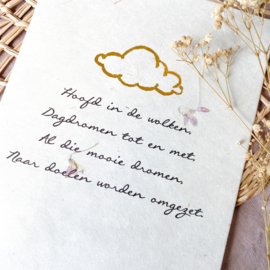 Hoofd in de wolken,
Dagdromen tot en met.
Al die mooie dromen,
Naar doelen worden omgezet.